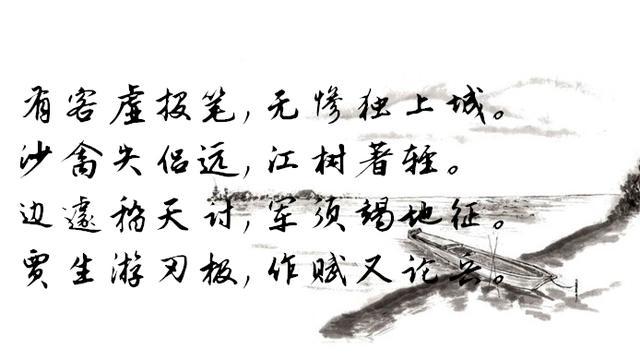 有客虚投笔,无憀独上城。
沙禽失侣远,江树著轻。
边遽稽天讨,军须竭地征。
贾生游刃极,作赋又论兵。